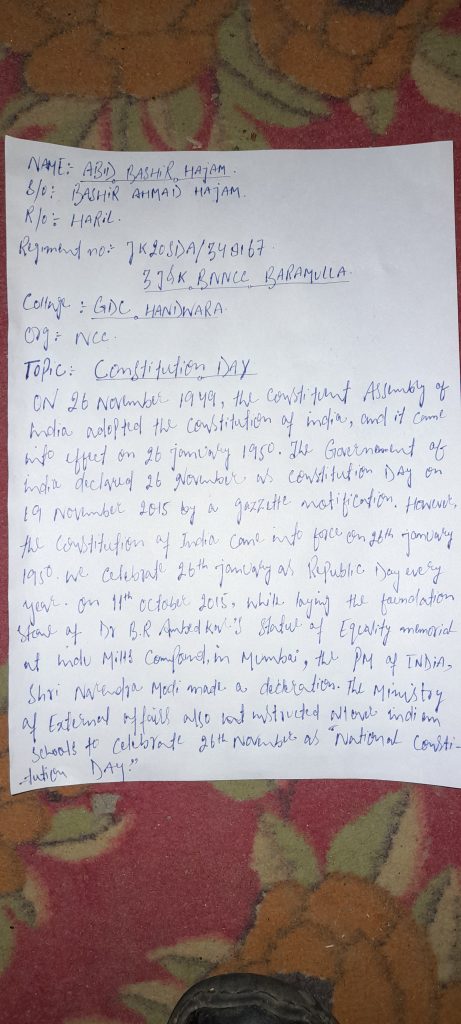 NAME:- ABID BASHIR HAJAM.
S/o:- BASHIR AHMAD HAJAM.
R/o:- HARIL.
Regiment no:- JK20SDA/348167
3 J&K BNNCC BARAMULLA.
College :- GDC HANDWARA.
Org:- NCC.
TOPIC:- Constitution DAY
ON 26 November 1949, the constituent Assembly of
India adopted the constitution of india, and it came
into effect on 26 january 1950. The Government of
India declared 26 November as constitution DAY on
19 November 2015 by a gazzette notification. However,
the constitution of India came into force on 26th january
1950. we celebrate 26th january as Republic Day every
year. on 11th october 2015, while laying the foundation
stone of Dr B.R Ambedkar's Statue of Equality memorial
at indu Mills Compound, in Mumbai, the PM of INDIA,
Shri Narendra Modi made a decleration. The Ministry
of External affairs also instructed all over indian
schools to celebrate 26th November as "National Consti-
-tution DAY."